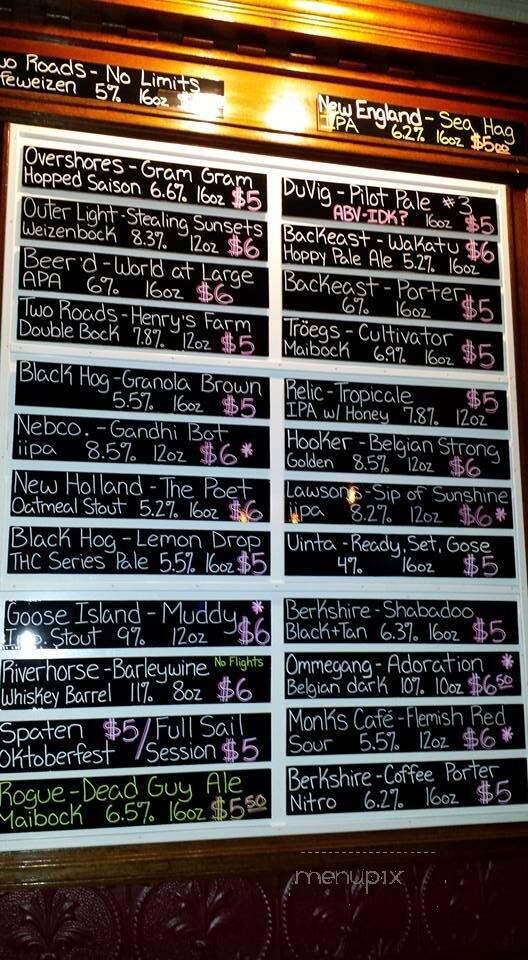 Roads - No Limits
feweizen 5% 16oz
New England - Sea Hag
IPA 6.2% 16oz $5.00
Overshores - Gram Gram
Hopped Saison 6.6% 16oz $5
Outer Light - Stealing Sunsets
Weizenbock 8.3% 12oz $6
Beer'd - World at Large
APA 6% 16oz $6
Two Roads - Henry's Farm
Double Bock 7.8% 12oz $5
Black Hog - Granola Brown
5.5% 16oz $5
Nebco. - Gandhi Bot
iipa 8.5% 12oz $6*
New Holland - The Poet
Oatmeal Stout 5.2% 16oz $6
Black Hog - Lemon Drop
THC Series Pale 5.5% 16oz $5
Goose Island - Muddy *
Imp. Stout 9% 12oz $6
Riverhorse - Barleywine No Flights
Whiskey Barrel 11% 8oz $6
Spaten $5/Full Sail
Oktoberfest Session $5
Rogue - Dead Guy Ale
Maibock 6.5% 16oz $5.50
DuVig - Pilot Pale #3
ABV-IDK? 16oz $5
Backeast - Wakatu $6
Hoppy Pale Ale 5.2% 16oz
Backeast - Porter
6% 16oz $5
Tröegs - Cultivator
Maibock 6.9% 16oz $5
Relic - Tropicale $5
IPA w/ Honey 7.8% 12oz
Hooker - Belgian Strong
Golden 8.5% 12oz $6
Lawson's - Sip of Sunshine
iipa 8.2% 12oz $6*
Uinta - Ready, Set, Gose
4% 16oz $5
Berkshire - Shabadoo
Black+Tan 6.3% 16oz $5
Ommegang - Adoration *
Belgian dark 10% 10oz $6.50
Monks Café - Flemish Red
Sour 5.5% 12oz $6*
Berkshire - Coffee Porter
Nitro 6.2% 16oz $5
menupix